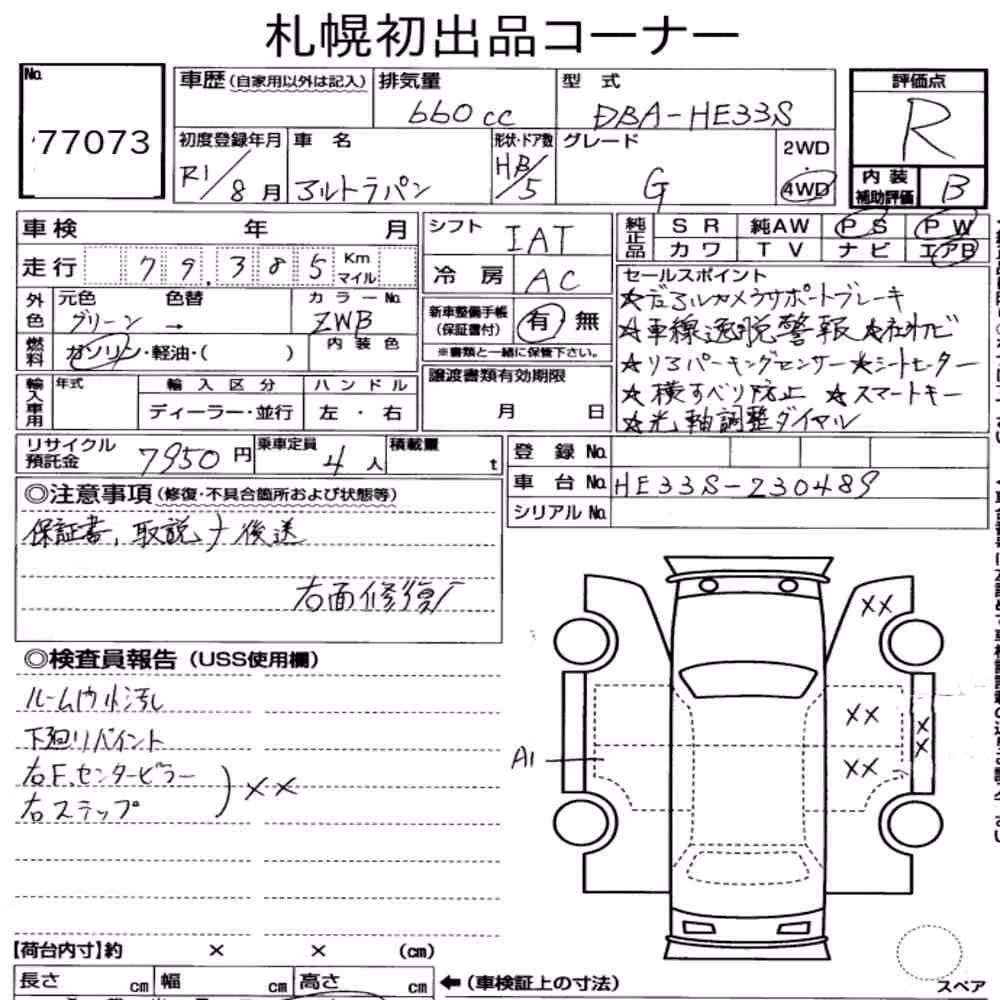 札幌初出品コーナー
No. 77073
車歴(自家用以外は記入) 排気量 660cc 型式 DBA-HE33S 評価点 R
初度登録年月 R1/8月 車名 アルトラパン 形状・ドア数 HB/5 グレード G 2WD・4WD 内装補助評価 B
車検 年 月 シフト IAT 純正品 SR 純AW PS PW
走行 79,385 Km マイル 冷房 AC カワ TV ナビ エアB
外色 元色 グリーン → 色替 カラーNo. ZWB
新車整備手帳(保証書付) 有 無
※書類と一緒に保管下さい。
燃料 ガソリン・軽油・( ) 内装色
セールスポイント
サポートブレーキ
☆車線逸脱警報
☆リアパーキングセンサー ☆シートヒーター
☆横すべり防止 ☆スマートキー
☆光軸調整ダイヤル
輸入車用 年式 輸入区分 ディーラー・並行 ハンドル 左・右
譲渡書類有効期限 月 日
リサイクル預託金 7950円 乗車定員 4人 積載量 t
登録No.
車台No. HE33S-230489
シリアルNo.
◎注意事項(修復・不具合箇所および状態等)
保証書、取説、後送
右面修復
◎検査員報告(USS使用欄)
ルーム内小汚れ
下廻りペイント
右F、センターピラー
右ステップ ) XX
XX
XX
XX
XX
A1
【荷台内寸】約 × × (cm)
長さ cm 幅 cm 高さ cm ←(車検証上の寸法)
スペア